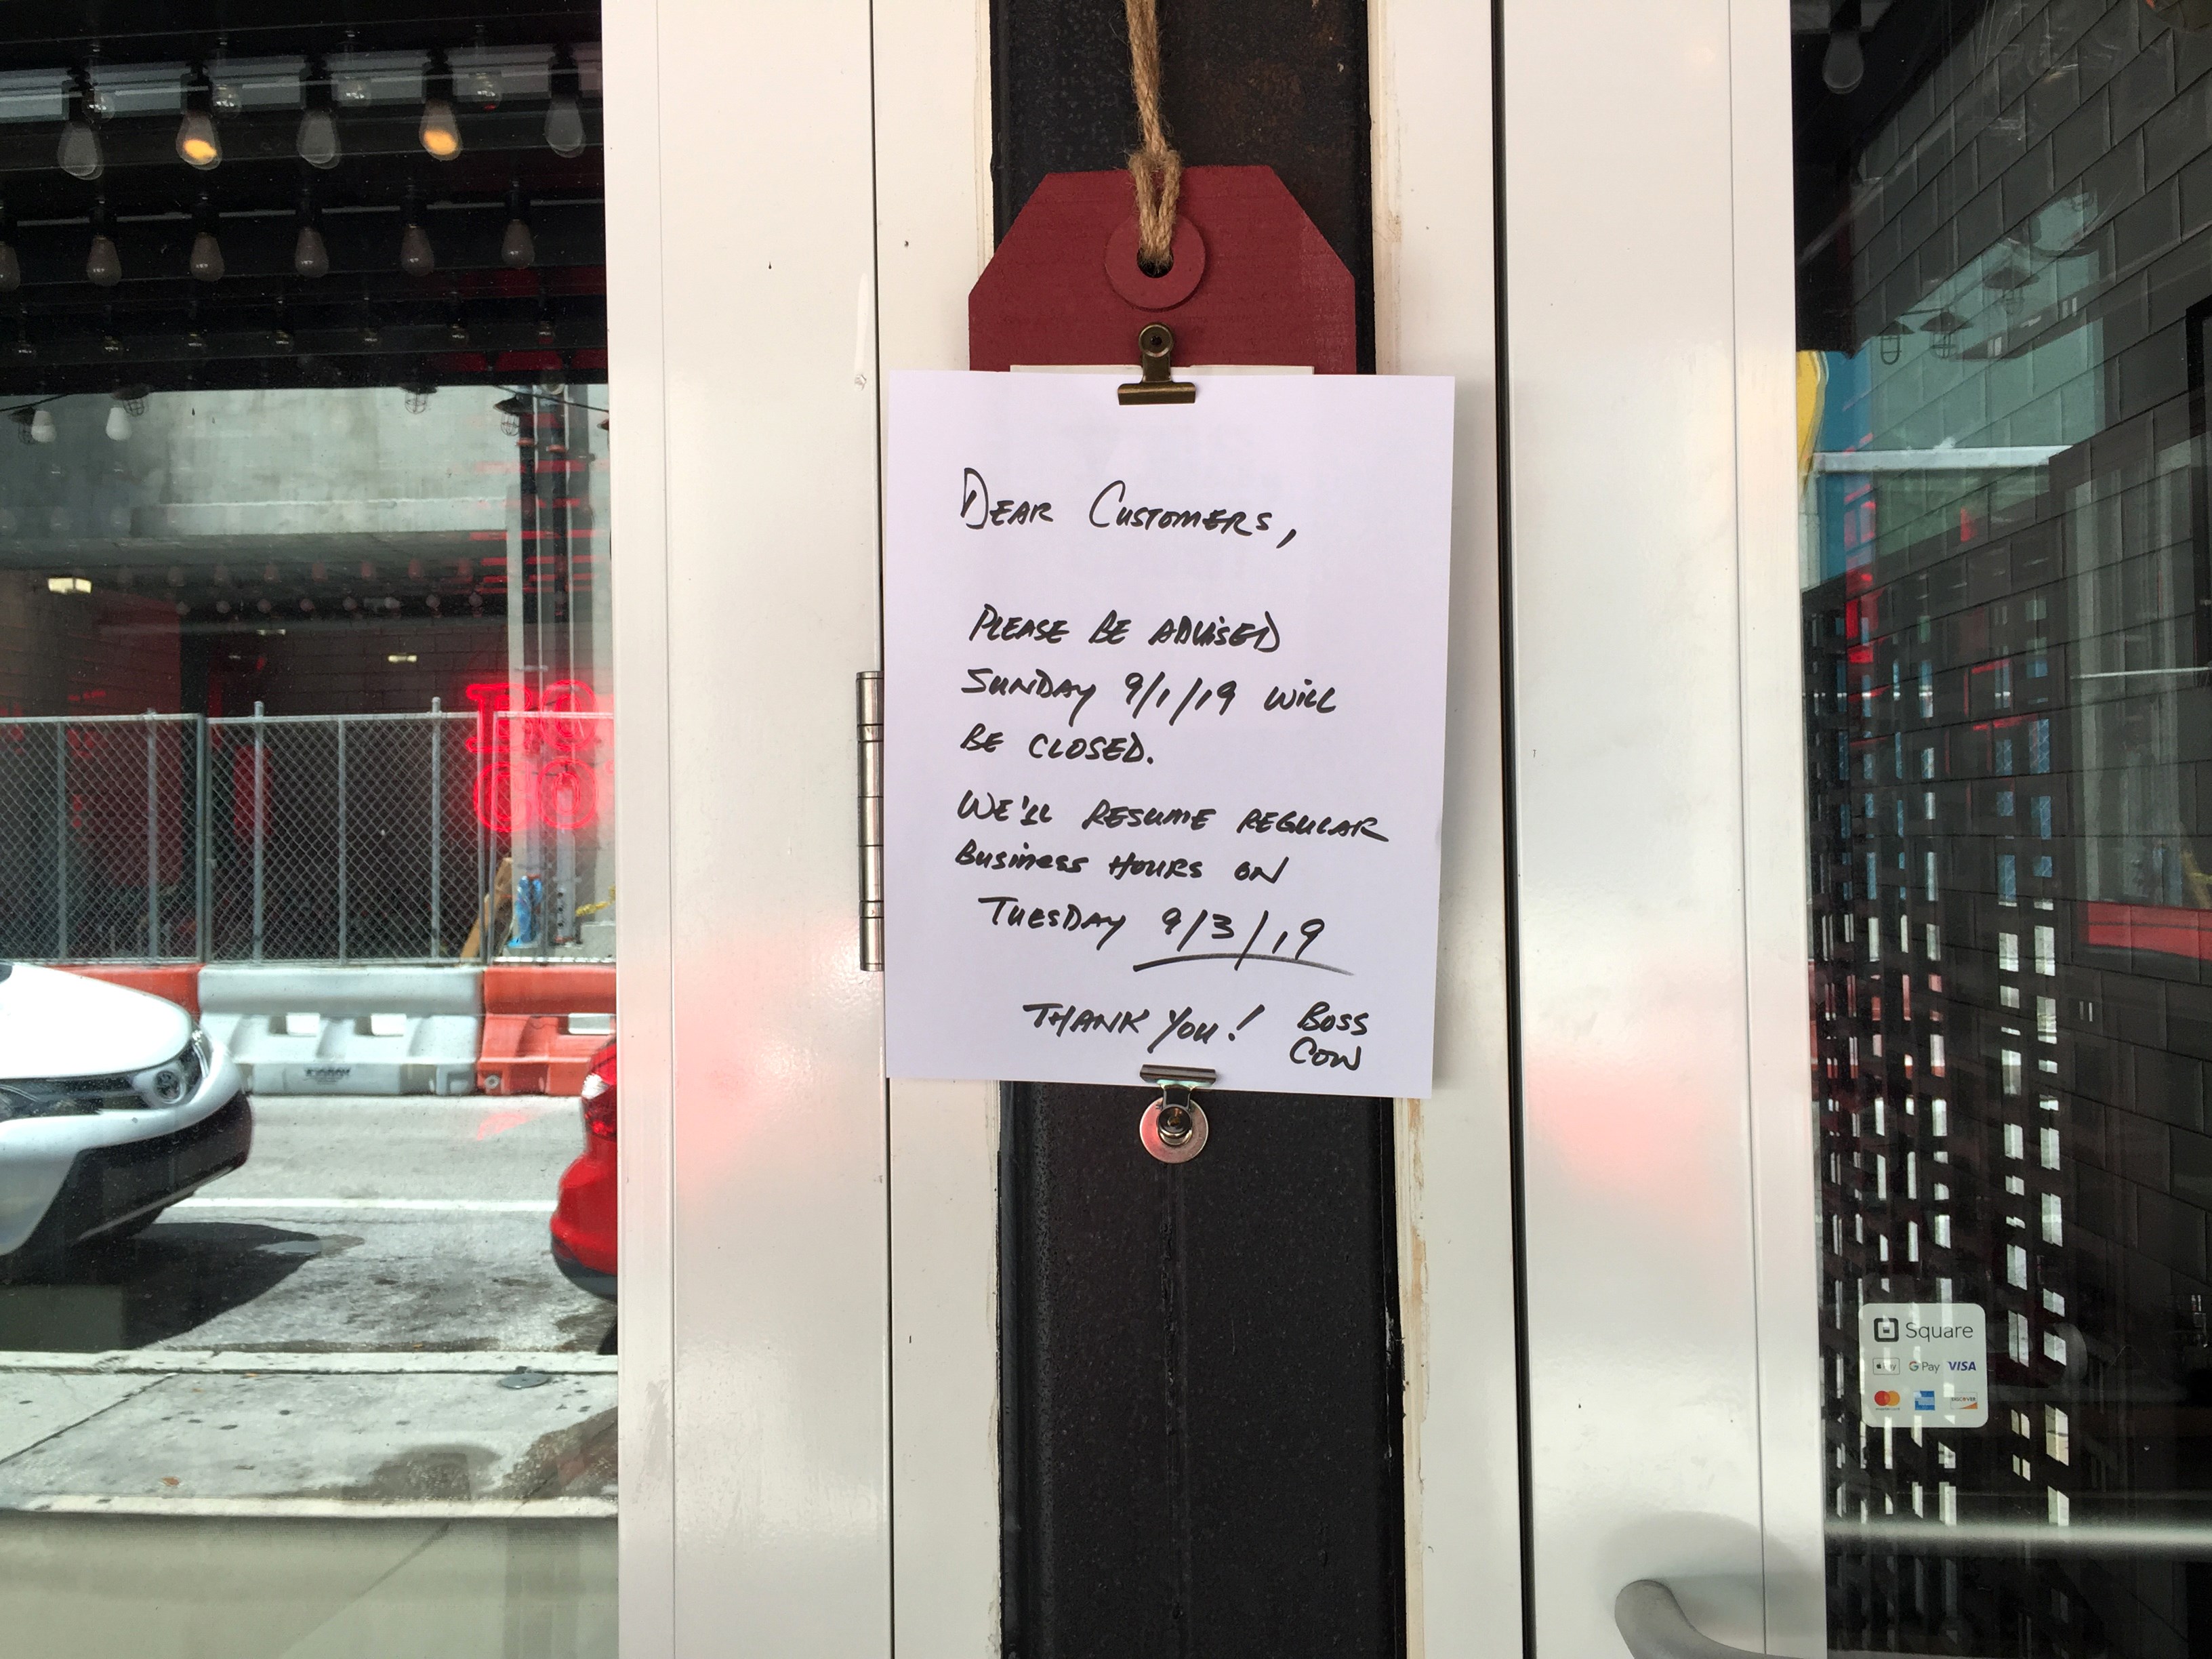 DEAR CUSTOMERS,
PLEASE BE ADVISED
SUNDAY 9/1/19 WILL
BE CLOSED.
WE'LL RESUME REGULAR
BUSINESS HOURS ON
TUESDAY 9/3/19
THANK YOU! BOSS
COW
Square
Pay G Pay VISA
DISCOVER